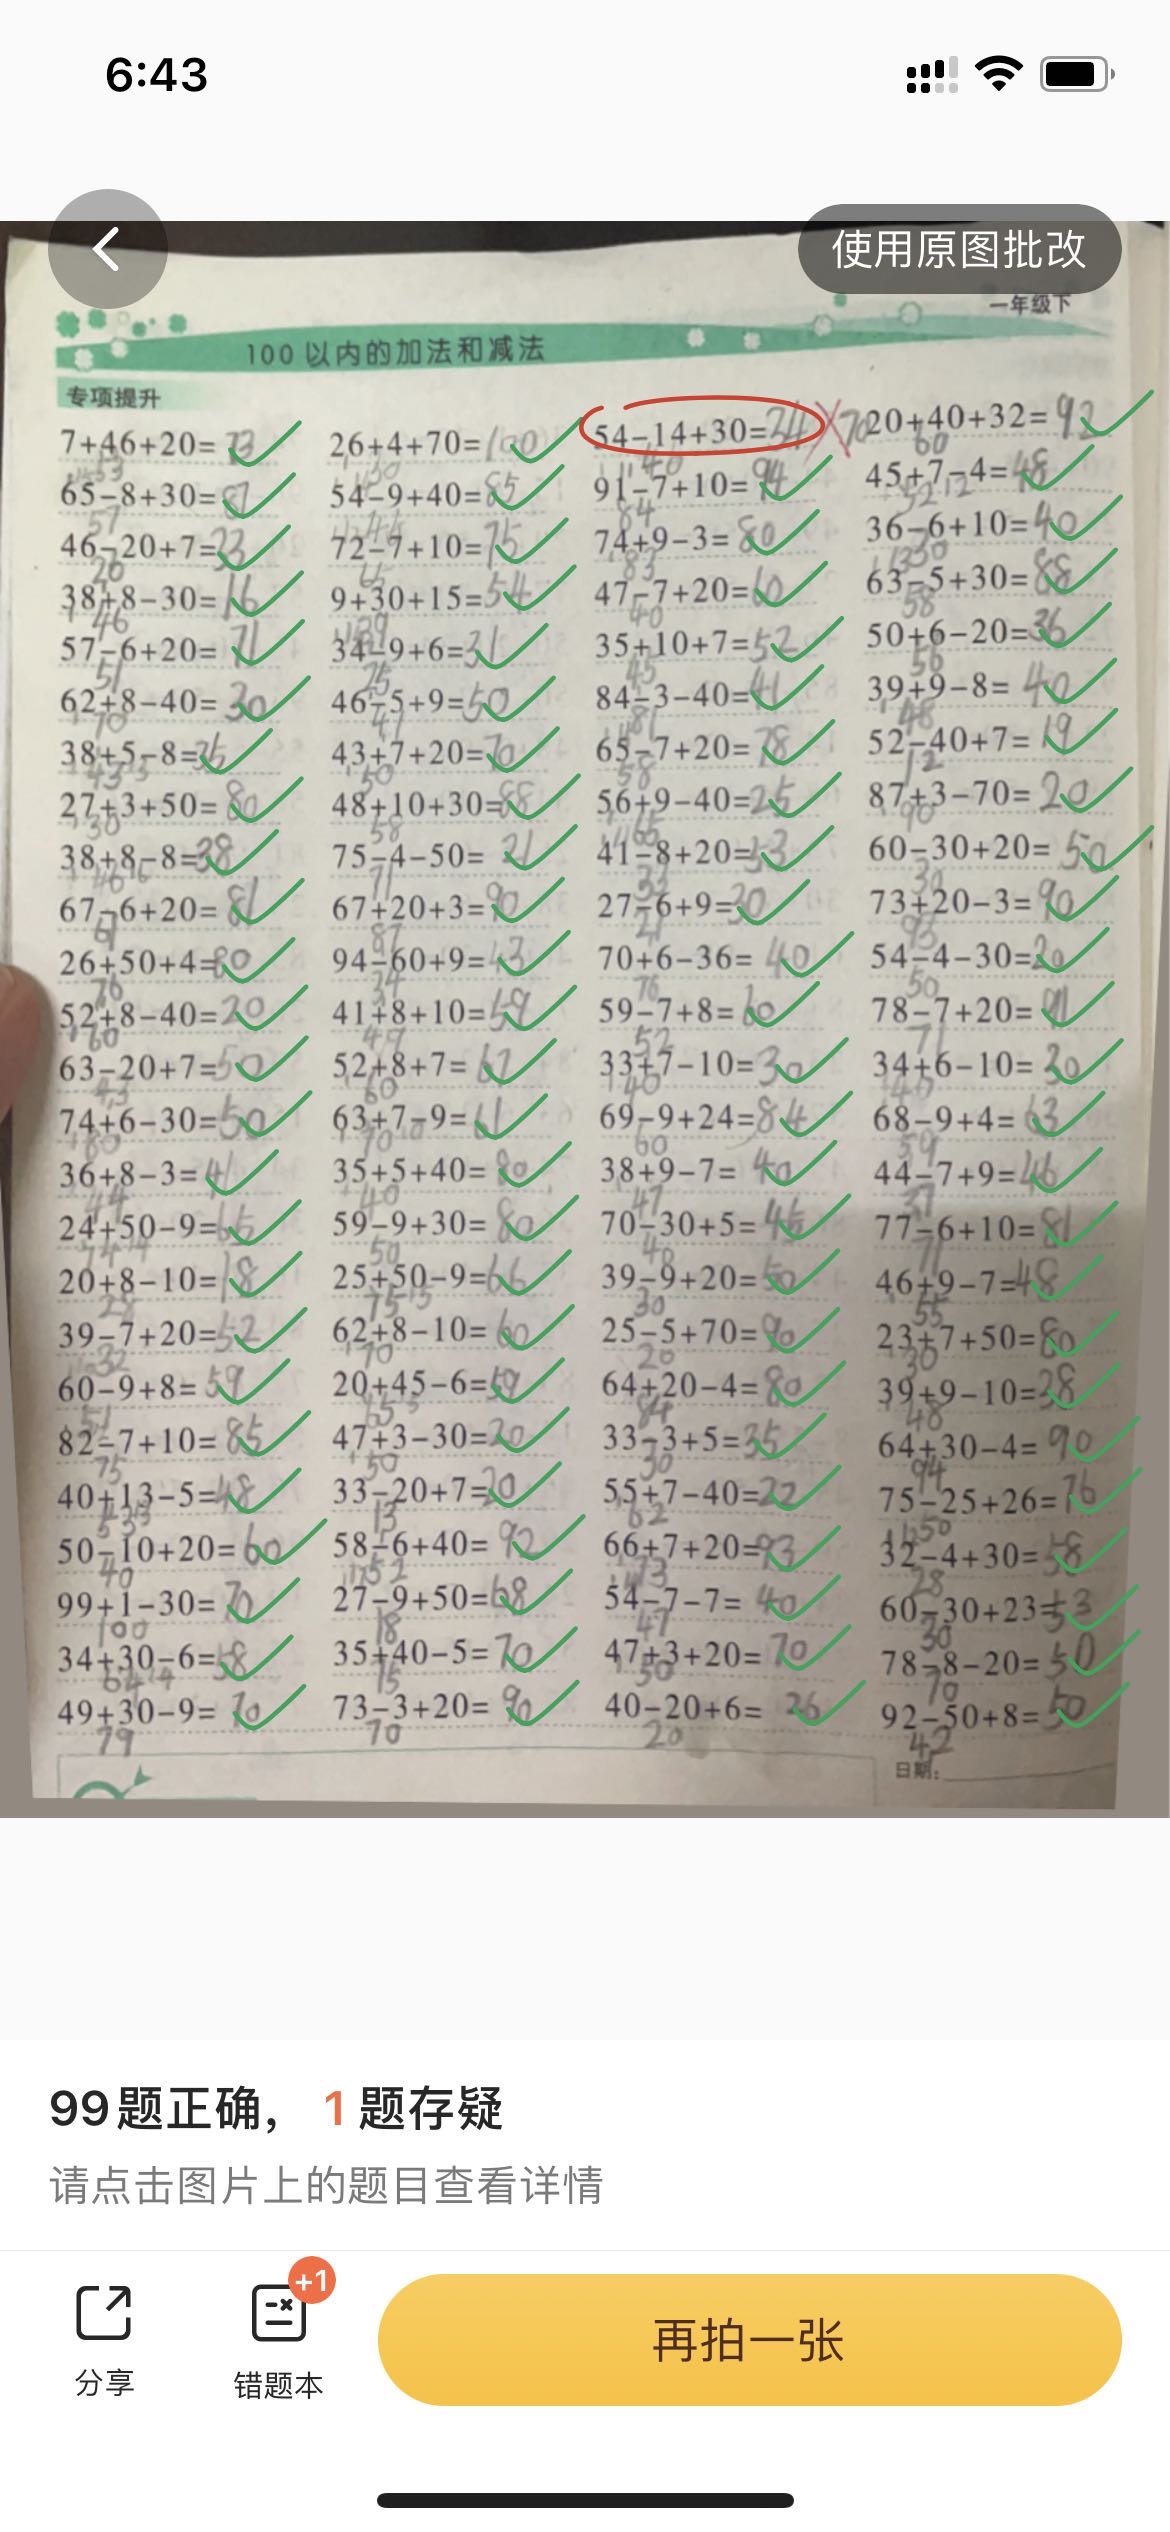 6:43
使用原图批改
一年级下
100 以内的加法和减法
专项提升
7+46+20=73 26+4+70=100 54-14+30=34 70 20+40+32=92
53 30 40 60
65-8+30=87 54-9+40=85 91-7+10=94 45+7-4=48
57 45 84 52 12
46-20+7=33 72-7+10=75 74+9-3=80 36-6+10=40
26 65 83 30
38+8-30=16 9+30+15=54 47-7+20=60 63-5+30=88
46 39 40 58
57-6+20=71 34-9+6=31 35+10+7=52 50+6-20=36
51 25 45 56
62+8-40=30 46-5+9=50 84-3-40=41 39+9-8=40
70 41 81 48
38+5-8=35 43+7+20=70 65-7+20=78 52-40+7=19
43 50 58 12
27+3+50=80 48+10+30=88 56+9-40=25 87+3-70=20
30 58 65 90
38+8-8=38 75-4-50=21 41-8+20=53 60-30+20=50
46 71 33 30
67-6+20=81 67+20+3=90 27-6+9=30 73+20-3=90
61 87 21 93
26+50+4=80 94-60+9=43 70+6-36=40 54-4-30=20
76 34 76 50
52+8-40=20 41+8+10=59 59-7+8=60 78-7+20=91
60 49 52 71
63-20+7=50 52+8+7=67 33+7-10=30 34+6-10=30
43 60 40 40
74+6-30=50 63+7-9=61 69-9+24=84 68-9+4=63
80 70 10 60 59
36+8-3=41 35+5+40=80 38+9-7=40 44-7+9=46
44 40 47 37
24+50-9=65 59-9+30=80 70-30+5=45 77-6+10=81
74 14 50 40 71
20+8-10=18 25+50-9=66 39-9+20=50 46+9-7=48
28 75 15 30 55
39-7+20=52 62+8-10=60 25-5+70=90 23+7+50=80
32 70 20 30
60-9+8=59 20+45-6=59 64+20-4=80 39+9-10=38
51 65 15 84 48
82-7+10=85 47+3-30=20 33-3+5=35 64+30-4=90
75 50 30 94
40+13-5=48 33-20+7=20 55+7-40=22 75-25+26=76
53 13 13 62 50
50-10+20=60 58-6+40=92 66+7+20=93 32-4+30=58
40 52 73 28
99+1-30=70 27-9+50=68 54-7-7=40 60-30+23=53
100 18 47 30
34+30-6=58 35+40-5=70 47+3+20=70 78-8-20=50
64 14 75 50 70
49+30-9=70 73-3+20=90 40-20+6=26 92-50+8=50
79 70 20 42
日期:
99题正确， 1 题存疑
请点击图片上的题目查看详情
+1
分享
错题本
再拍一张